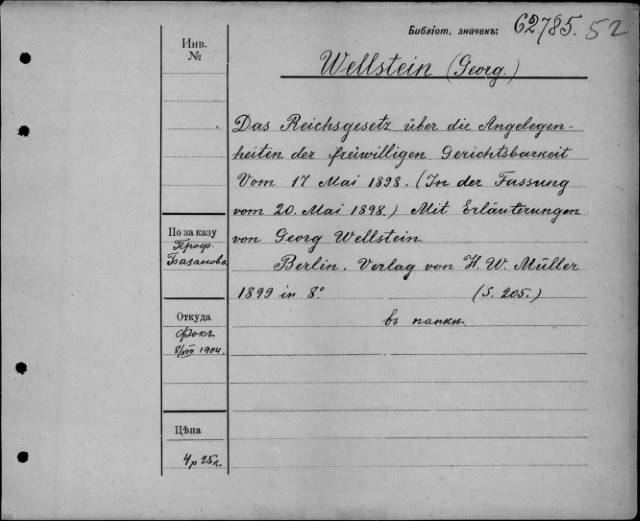 Библіот. значекъ: 62785. 52
Инв.
№
Wellstein (Georg.)
Das Reichsgesetz über die Angelegen-
heiten der freiwilligen Gerichtsbarkeit
Vom 17 Mai 1898. (In der Fassung
vom 20. Mai 1898.) Mit Erläuterungen
von Georg Wellstein.
Berlin. Verlag von H. W. Müller
1899 in 8° (S. 205.)
въ папкѣ.
По заказу
Проф.
Базанова
Откуда
Фокъ
8/VIII 1904.
Цѣна
4 р 25 к.